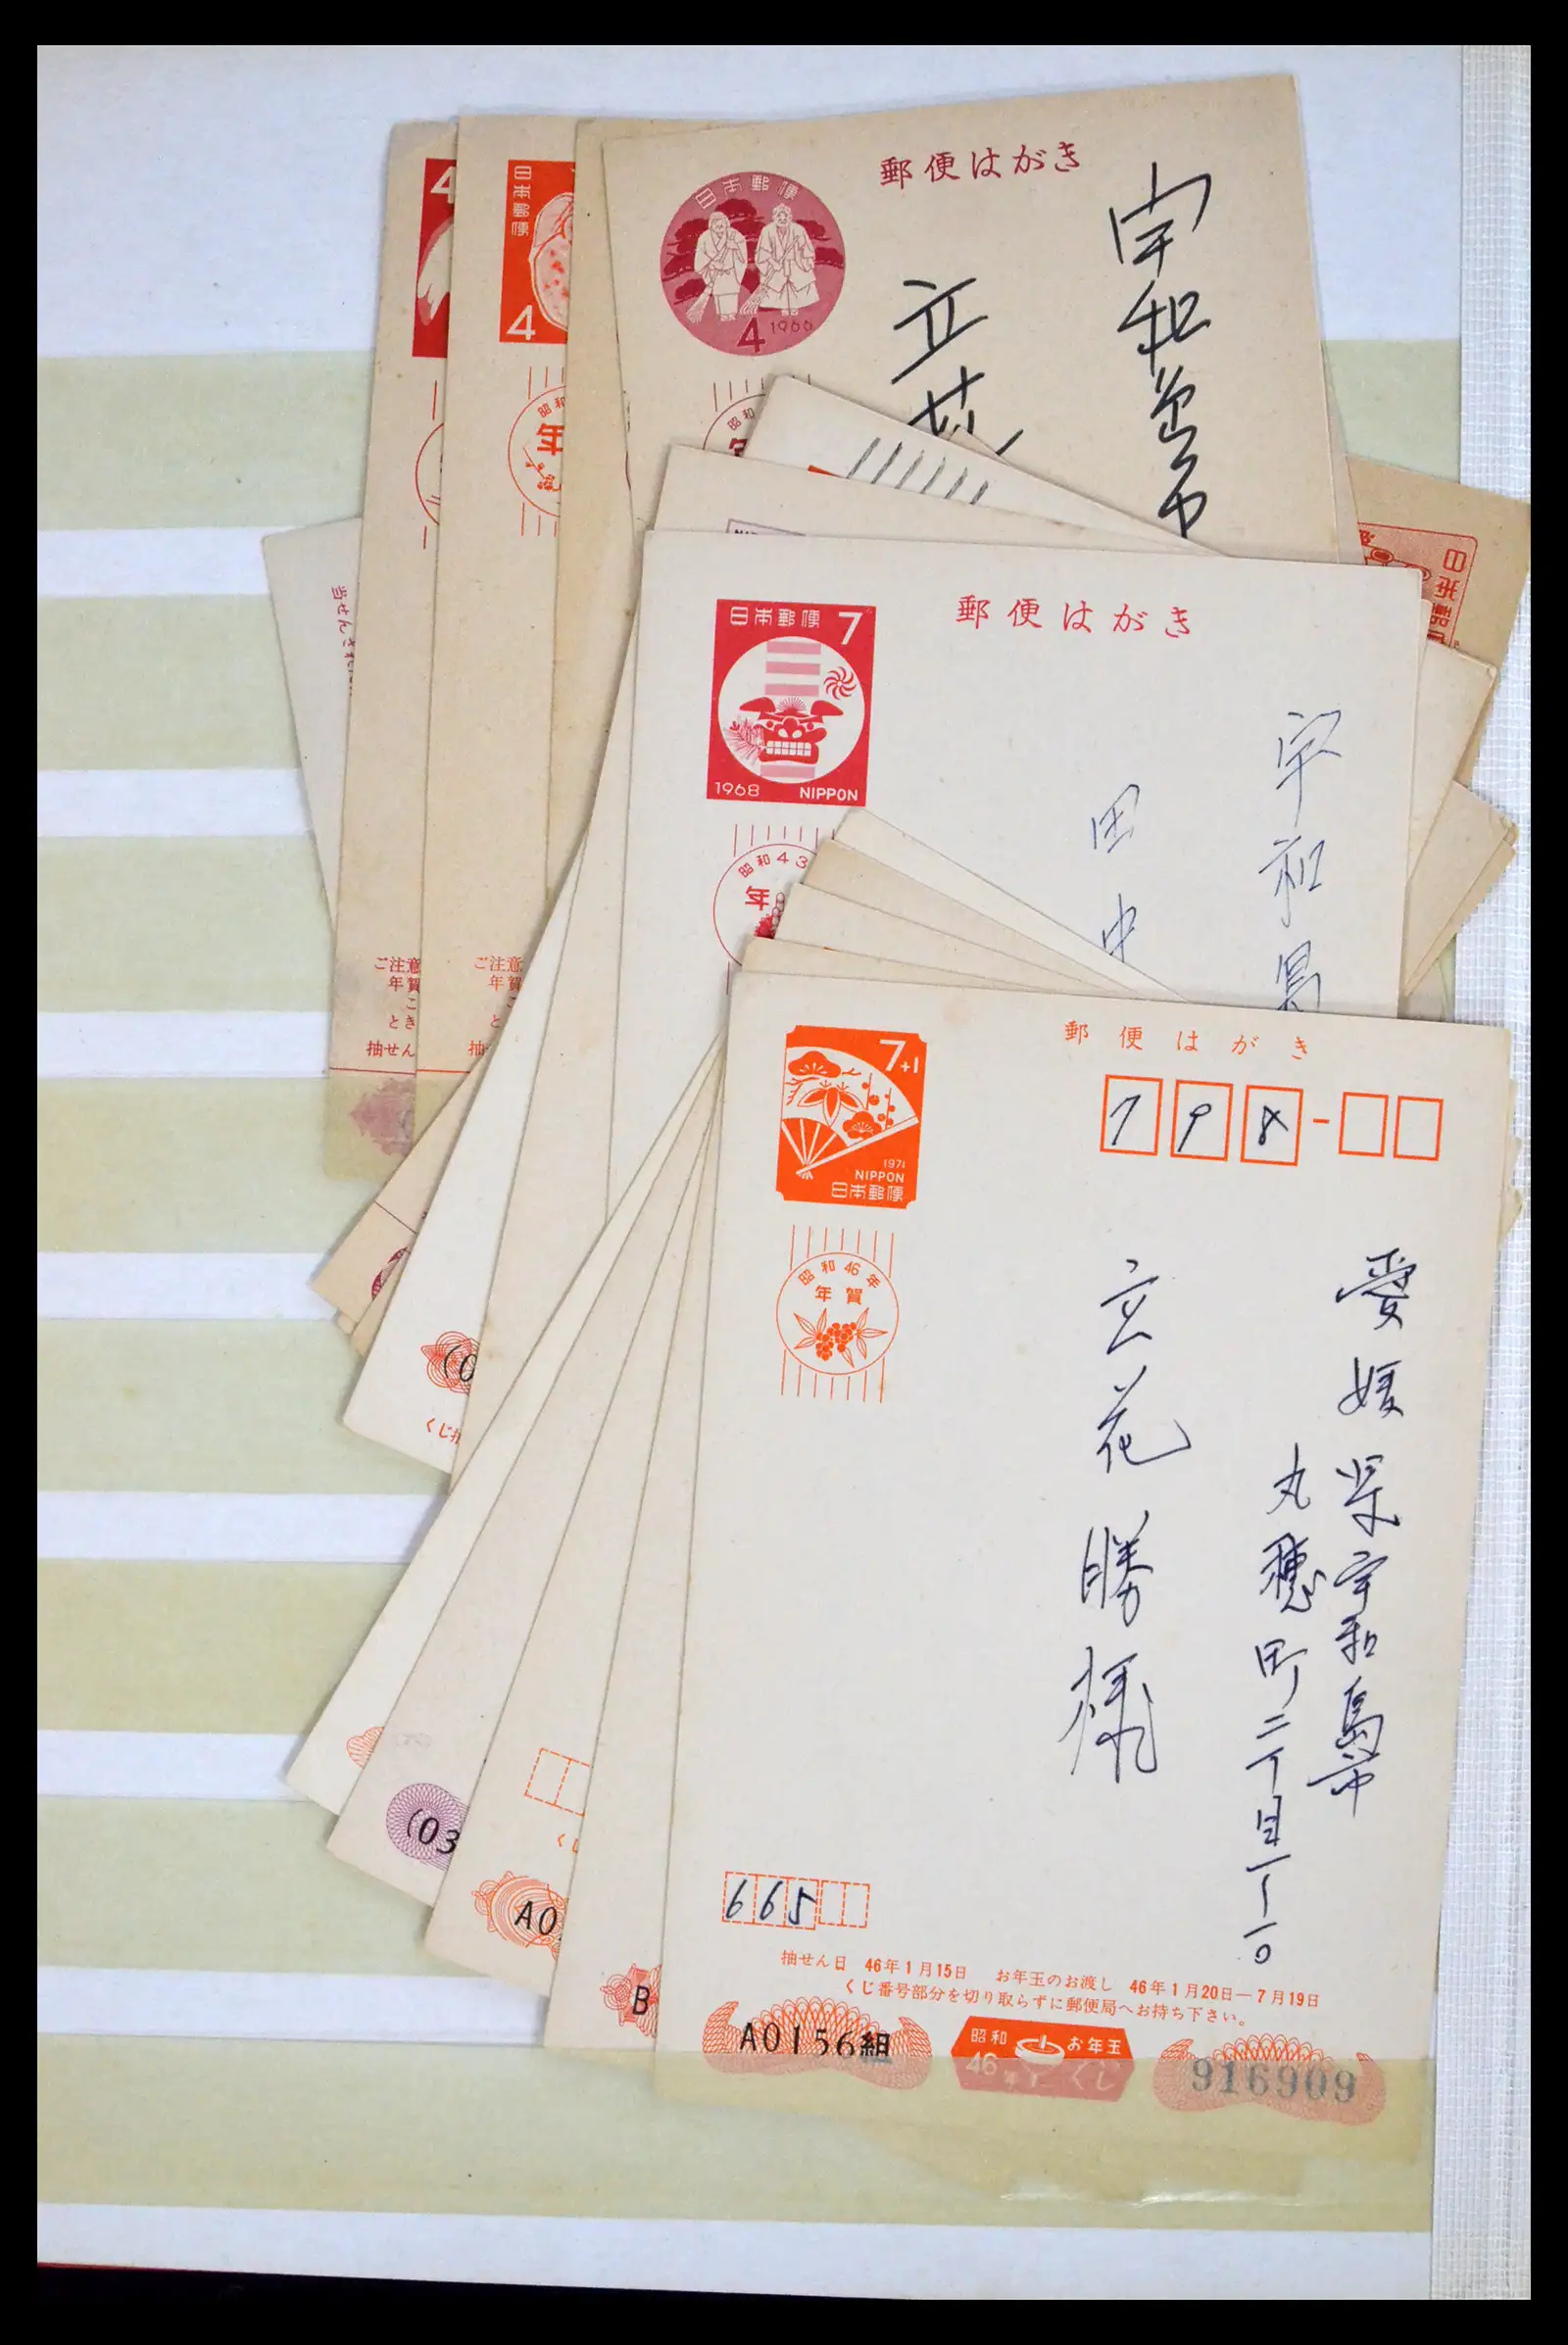 郵便はがき
日本郵便
4 1966
宇和島市
立花
昭和
年
4
日本郵便
4
昭和
年
当せんされ
ご注意
年賀
こ
とき
抽せん
ご注意
年賀
こ
と
抽せ
日本郵便
郵便はがき
日本郵便 7
1968 NIPPON
昭和43
年
宇和島
田中
郵便はがき
7+1
1971
NIPPON
日本郵便
798-
昭和46年
年賀
愛媛県宇和島市
丸穂町二丁目一ー一〇
立花勝様
665
抽せん日 46年1月15日 お年玉のお渡し 46年1月20日—7月19日
くじ番号部分を切り取らずに郵便局へお持ち下さい。
A0156組
昭和 お年玉
46年 くじ
916909
(0
くじ
(03
A0
B